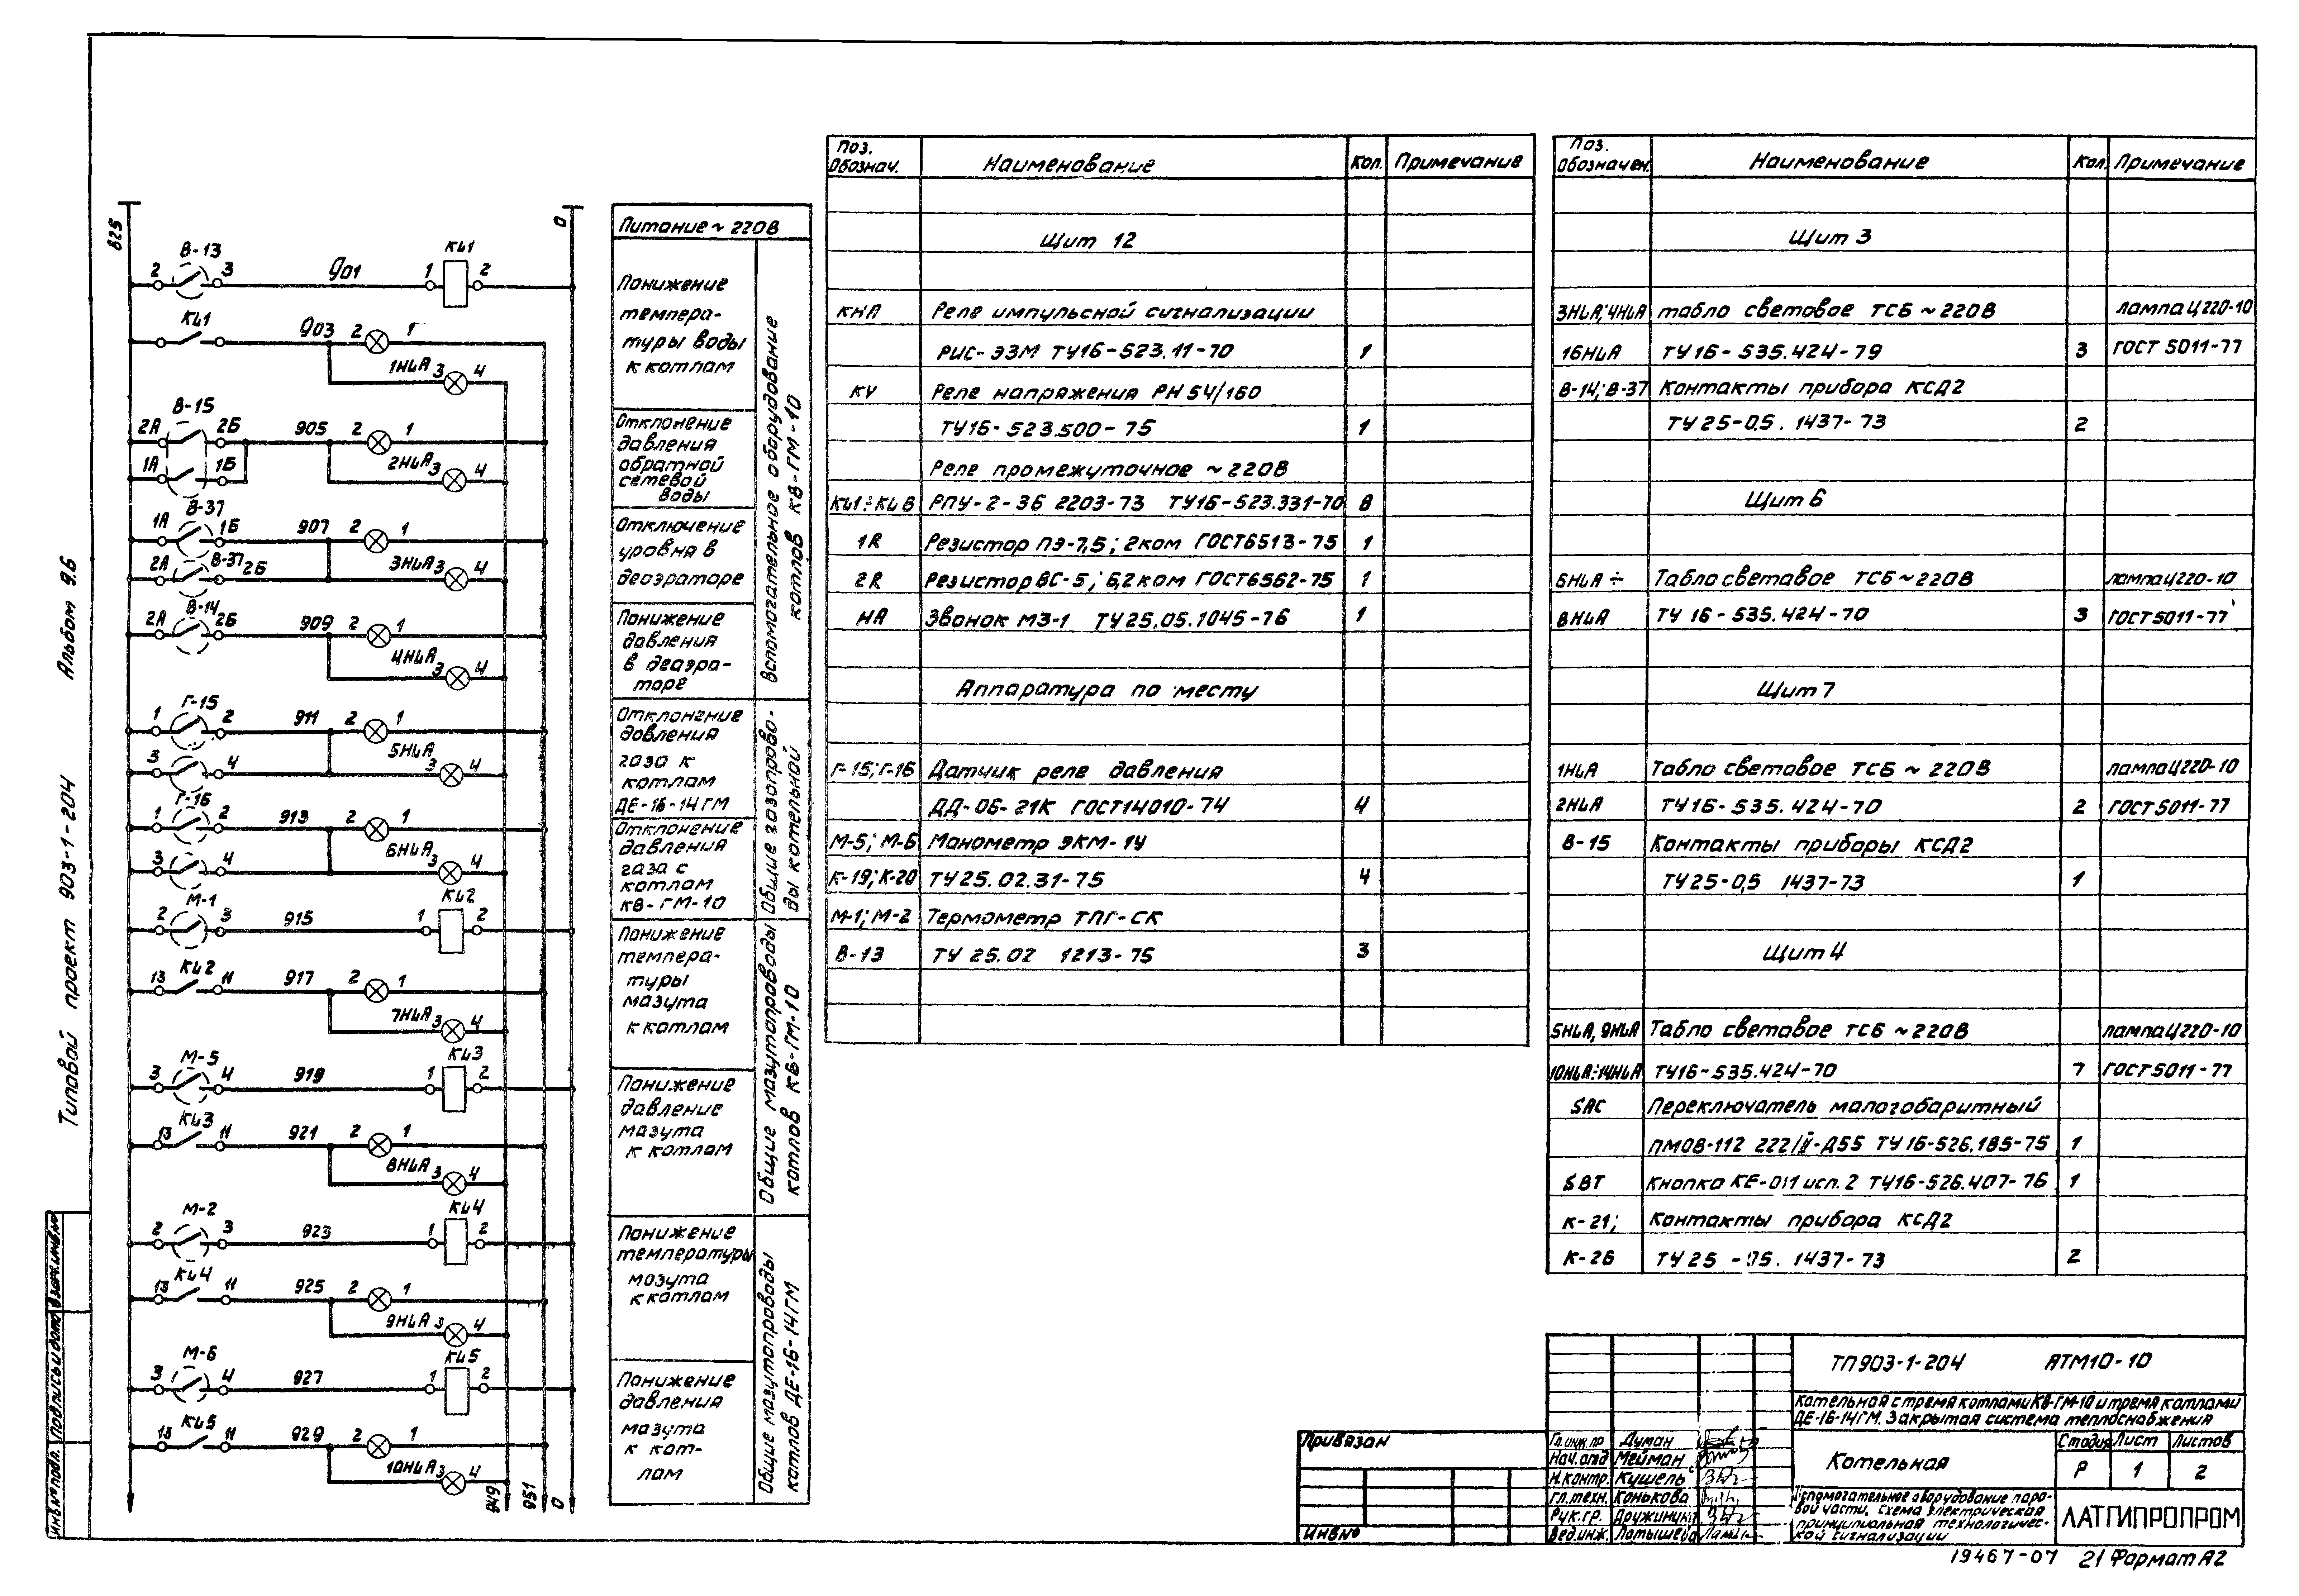 Альбом 9.6
Типовой проект 903-1-204
825
0
В-13
КЦ1
2 3 901 1 2
КЦ1
903 2 1
1НЦА 3 4
В-15
2А 2Б 905 2 1
1А 1Б 2НЦА 3 4
В-37
1А 1Б 907 2 1
2А В-37 2Б 3НЦА 3 4
В-14
2А 2Б 909 2 1
4НЦА 3 4
Г-15
1 2 911 2 1
3 4 5НЦА 3 4
Г-16
1 2 913 2 1
3 4 6НЦА 3 4
М-1
КЦ2
2 3 915 1 2
КЦ2
13 11 917 2 1
7НЦА 3 4
М-5
КЦ3
3 4 919 1 2
КЦ3
13 11 921 2 1
8НЦА 3 4
М-2
КЦ4
2 3 923 1 2
КЦ4
13 11 925 2 1
9НЦА 3 4
М-6
КЦ5
3 4 927 1 2
КЦ5
13 11 929 2 1
10НЦА 3 4
949
951
0
Питание ~ 220В
Понижение
темпера-
туры воды
к котлам
Отклонение
давления
обратной
сетевой
воды
Отключение
уровня в
деаэраторе
Понижение
давления
в деаэра-
торе
Вспомогательное оборудование
котлов КВ-ГМ-10
Отклонение
довления
газа к
котлам
ДЕ-16-14ГМ
Отклонение
давления
газа с
котлам
КВ-ГМ-10
Общие газопрово-
ды котельной
Понижение
темпера-
туры
мазута
к котлам
Понижение
давление
мазута
к котлам
Общие мазутопроводы
котлов КВ-ГМ-10
Понижение
температуры
мазута
к котлам
Понижение
давления
мазута
к кот-
лам
Общие мазутопроводы
котлов ДЕ-16-14ГМ
Поз. Обознач. Наименование Кол. Примечание
Щит 12
КНА Реле импульсной сигнализации
РИС-ЭЗМ ТУ16-523.11-70 1
КV Реле напряжения РН 54/160
ТУ16-523.500-75 1
Реле промежуточное ~ 220В
КЦ1÷КЦ8 РПУ-2-36 2203-73 ТУ16-523.331-70 8
1R Резистор ПЭ-7,5; 2ком ГОСТ6513-75 1
2R Резистор ВС-5; 6,2 ком ГОСТ6562-75 1
НА Звонок МЗ-1 ТУ25.05.1045-76 1
Аппаратура по месту
Г-15; Г-16 Датчик реле давления
ДД-06-21К ГОСТ14010-74 4
М-5; М-6 Манометр ЭКМ-1У
К-19; К-20 ТУ25.02.31-75 4
М-1; М-2 Термометр ТПГ-СК
В-13 ТУ 25.02 1213-75 3
Поз. Обозначен. Наименование Кол. Примечание
Щит 3
3НЦА; 4НЦА табло световое ТСБ ~ 220В лампа Ц220-10
16НЦА ТУ16-535.424-79 3 ГОСТ 5011-77
В-14; В-37 Контакты прибора КСД2
ТУ 25-0,5. 1437-73 2
Щит 6
6НЦА ÷ Табло световое ТСБ ~ 220В лампа Ц220-10
8НЦА ТУ 16-535.424-70 3 ГОСТ 5011-77
Щит 7
1НЦА Табло световое ТСБ ~ 220В лампа Ц220-10
2НЦА ТУ16-535.424-70 2 ГОСТ 5011-77
В-15 Контакты приборы КСД2
ТУ 25-0,5 1437-73 1
Щит 4
5НЦА, 9НЦА Табло световое ТСБ ~ 220В лампа Ц220-10
10НЦА÷14НЦА ТУ16-535.424-70 7 ГОСТ 5011-77
SAC Переключатель малогабаритный
ПМОВ-112 222/II-Д55 ТУ16-526.185-75 1
SBT Кнопка КЕ-011 исп. 2 ТУ16-526.407-76 1
К-21; Контакты прибора КСД2
К-26 ТУ 25 1437-73 2
ТП903-1-204 АТМ10-10
Котельная с тремя котлами КВ-ГМ-10 и тремя котлами
ДЕ-16-14ГМ. Закрытая система теплоснабжения
Котельная
Стадия Лист Листов
Р 1 2
Вспомогательное оборудование паро-
вой части. Схема электрическая
принципиальная технологичес-
кой сигнализации
ЛАТГИПРОПРОМ
Гл.инж.пр Думан
Нач.отд Мейман
Н.контр. Кушель
Гл.техн. Конькова
Рук.гр. Дружинина
Вед.инж. Латышева
Привязан
Инв №
Инв.№ подл. Подпись и дата Взам.инв.№
19467-07 21 Формат А2